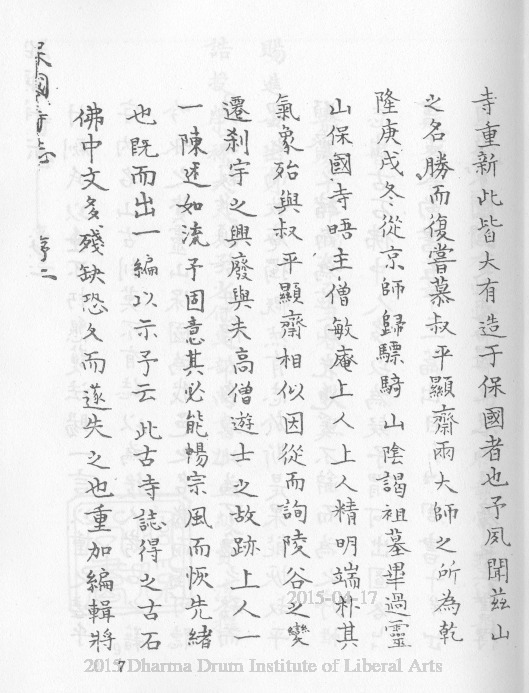 寺重新此皆大有造于保國者也予夙聞茲山
之名勝而復嘗慕叔平顯齋兩大師之所為乾
隆庚戌冬從京師歸驃騎山陰謁祖墓畢過靈
山保國寺晤主僧敏庵上人上人精明端朴其
氣象殆與叔平顯齋相似因從而詢陵谷之變
遷刹宇之興廢與夫高僧遊士之故跡上人一
一陳述如流予固意其必能暢宗風而恢先緒
也既而出一編以示予云此古寺誌得之古石
佛中文多殘缺恐久而遂失之也重加編輯將
保國寺志 序二
7
2015-04-17
2015 Dharma Drum Institute of Liberal Arts